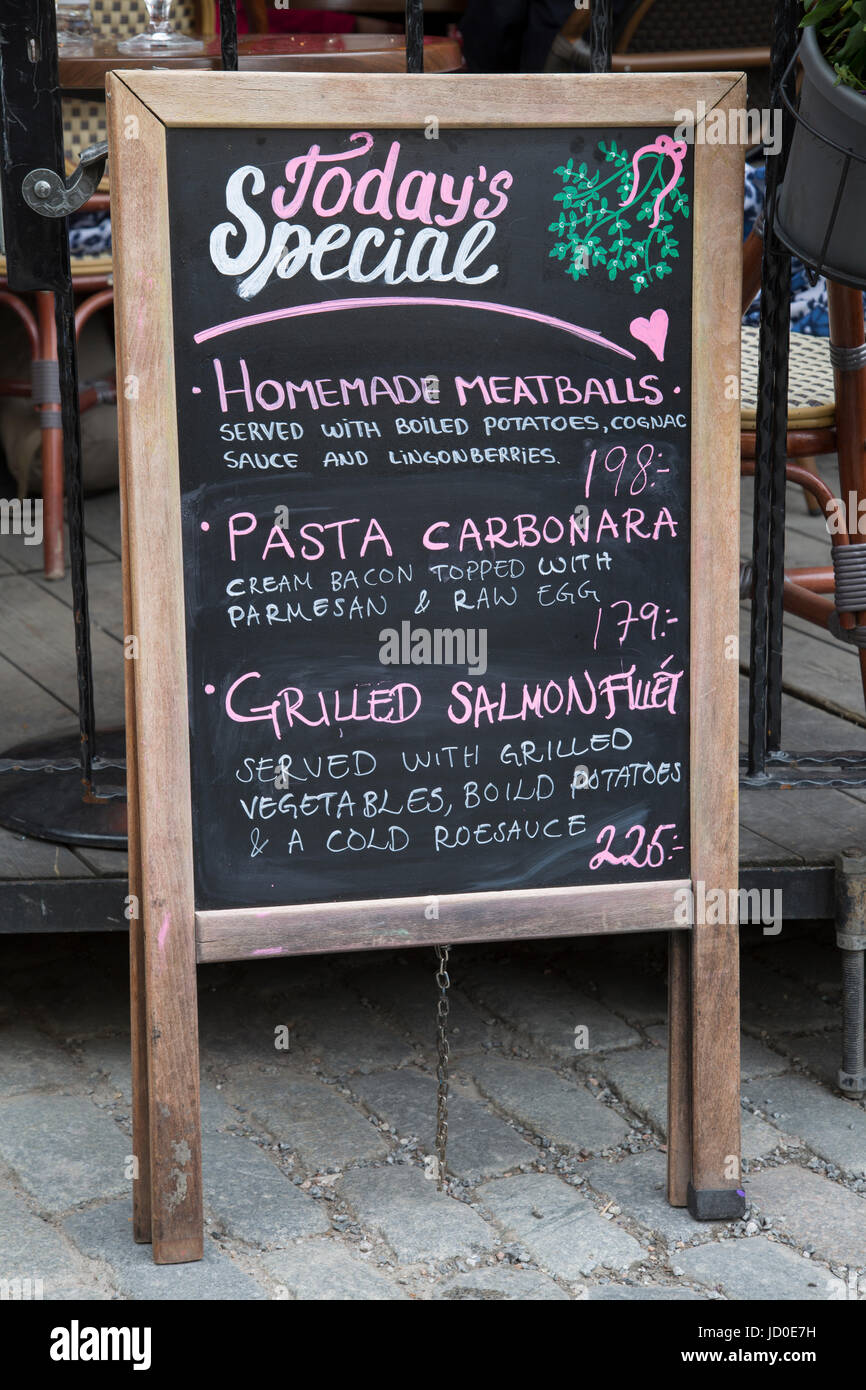 Today's
Special
· HOMEMADE MEATBALLS ·
SERVED WITH BOILED POTATOES, COGNAC
SAUCE AND LINGONBERRIES.
198:-
· PASTA CARBONARA
CREAM BACON TOPPED WITH
PARMESAN & RAW EGG
179:-
· GRILLED SALMON FILLÉT
SERVED WITH GRILLED
VEGETABLES, BOILD POTATOES
& A COLD ROESAUCE
225:-
alamy stock photo
JD0E7H
www.alamy.com